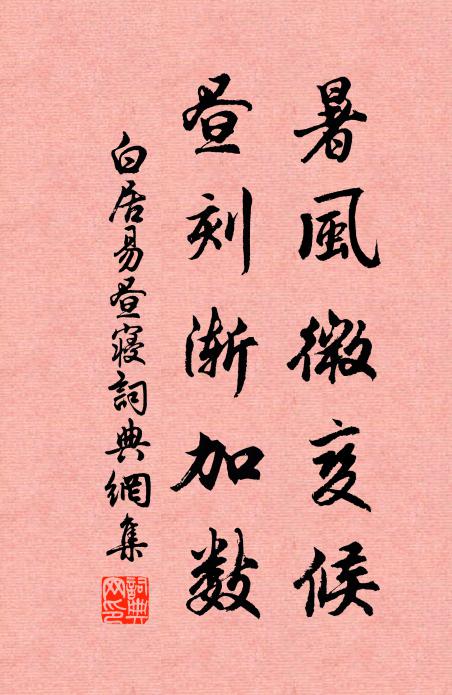 暑風微变候
昼刻漸加数
白居易昼寝詞典網集
詞典
网印